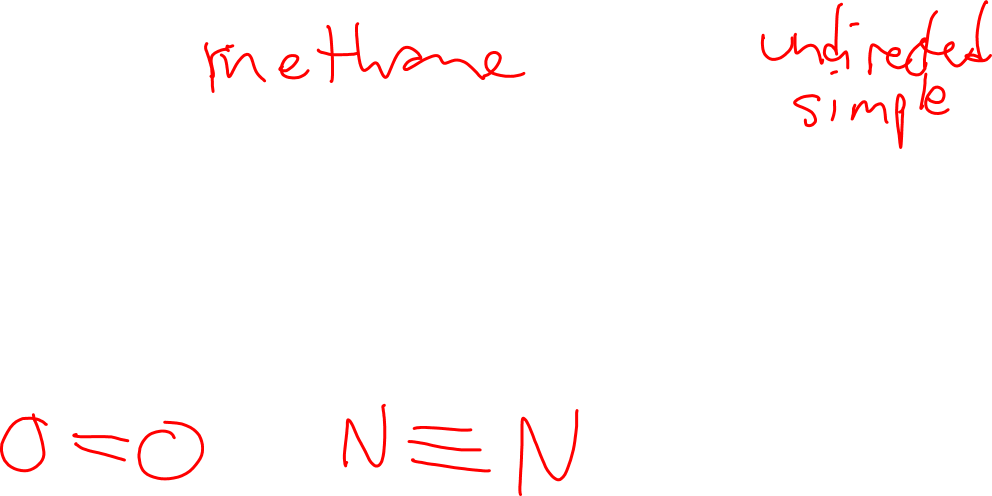 methane
undirected
simple
O=O N≡N